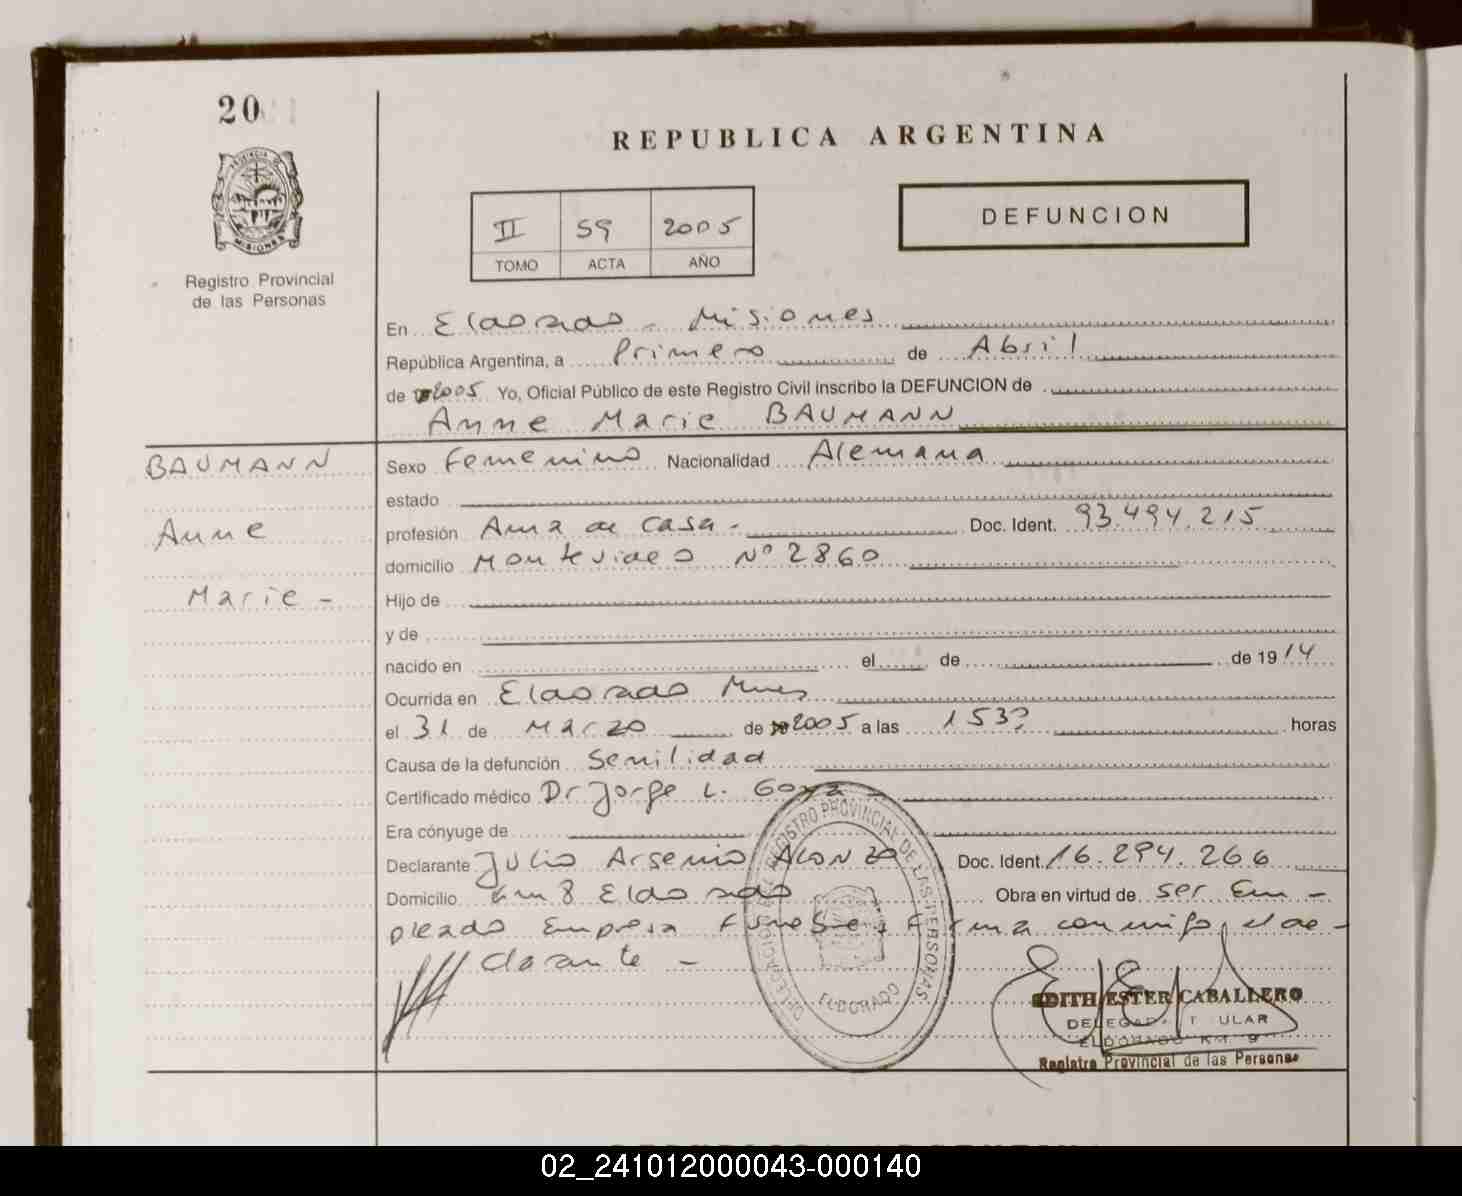 20
REPUBLICA ARGENTINA
PROVINCIA DE
MISIONES
Registro Provincial
de las Personas
DEFUNCION
II 59 2005
TOMO ACTA AÑO
En Eldorado - Misiones
República Argentina, a Primero de Abril
de 2005 Yo, Oficial Público de este Registro Civil inscribo la DEFUNCION de
Anne Marie BAUMANN
BAUMANN
Anne
Marie -
Sexo Femenino Nacionalidad Alemana
estado
profesión Ama de casa - Doc. Ident. 93.494.215
domicilio Montevideo Nº 2860
Hijo de
y de
nacido en el de de 1914
Ocurrida en Eldorado Mnes
el 31 de Marzo de 2005 a las horas
Causa de la defunción Senilidad
Certificado médico Dr Jorge L. Goya -
Era cónyuge de
Declarante Julio Arsenio ALONZO Doc. Ident. 16.294.266
Domicilio Km 8 Eldorado Obra en virtud de ser Em -
pleado Empresa Funebre; Firma conmigo, el de -
clarante -
DELEGACION DEL REGISTRO PROVINCIAL DE LAS PERSONAS
ELDORADO
EDITH ESTER CABALLERO
DELEGADA TITULAR
ELDORADO KM 9
Registro Provincial de las Personas
02_241012000043-000140